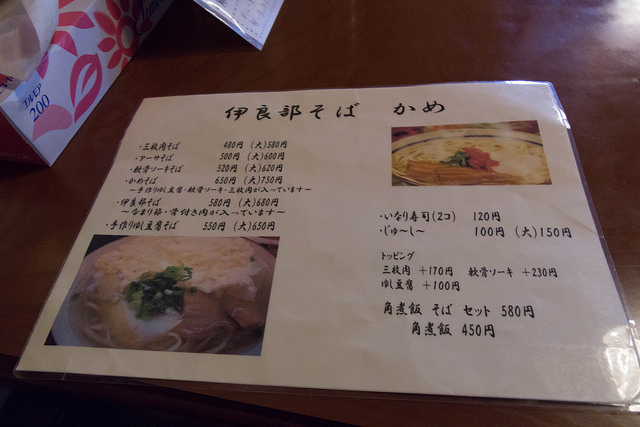 伊良部そば かめ
・三枚肉そば 480円 (大)580円
・アーサそば 500円 (大)600円
・軟骨ソーキそば 520円 (大)620円
・かめそば 650円 (大)750円
～手作りゆし豆腐・軟骨ソーキ・三枚肉が入っています～
・伊良部そば 580円 (大)680円
～なまり節・骨付き肉が入っています～
・手作りゆし豆腐そば 550円 (大)650円
・いなり寿司(2コ) 120円
・じゅーしー 100円 (大)150円
トッピング
三枚肉 +170円 軟骨ソーキ +230円
ゆし豆腐 +100円
角煮飯 そば セット 580円
角煮飯 450円
200